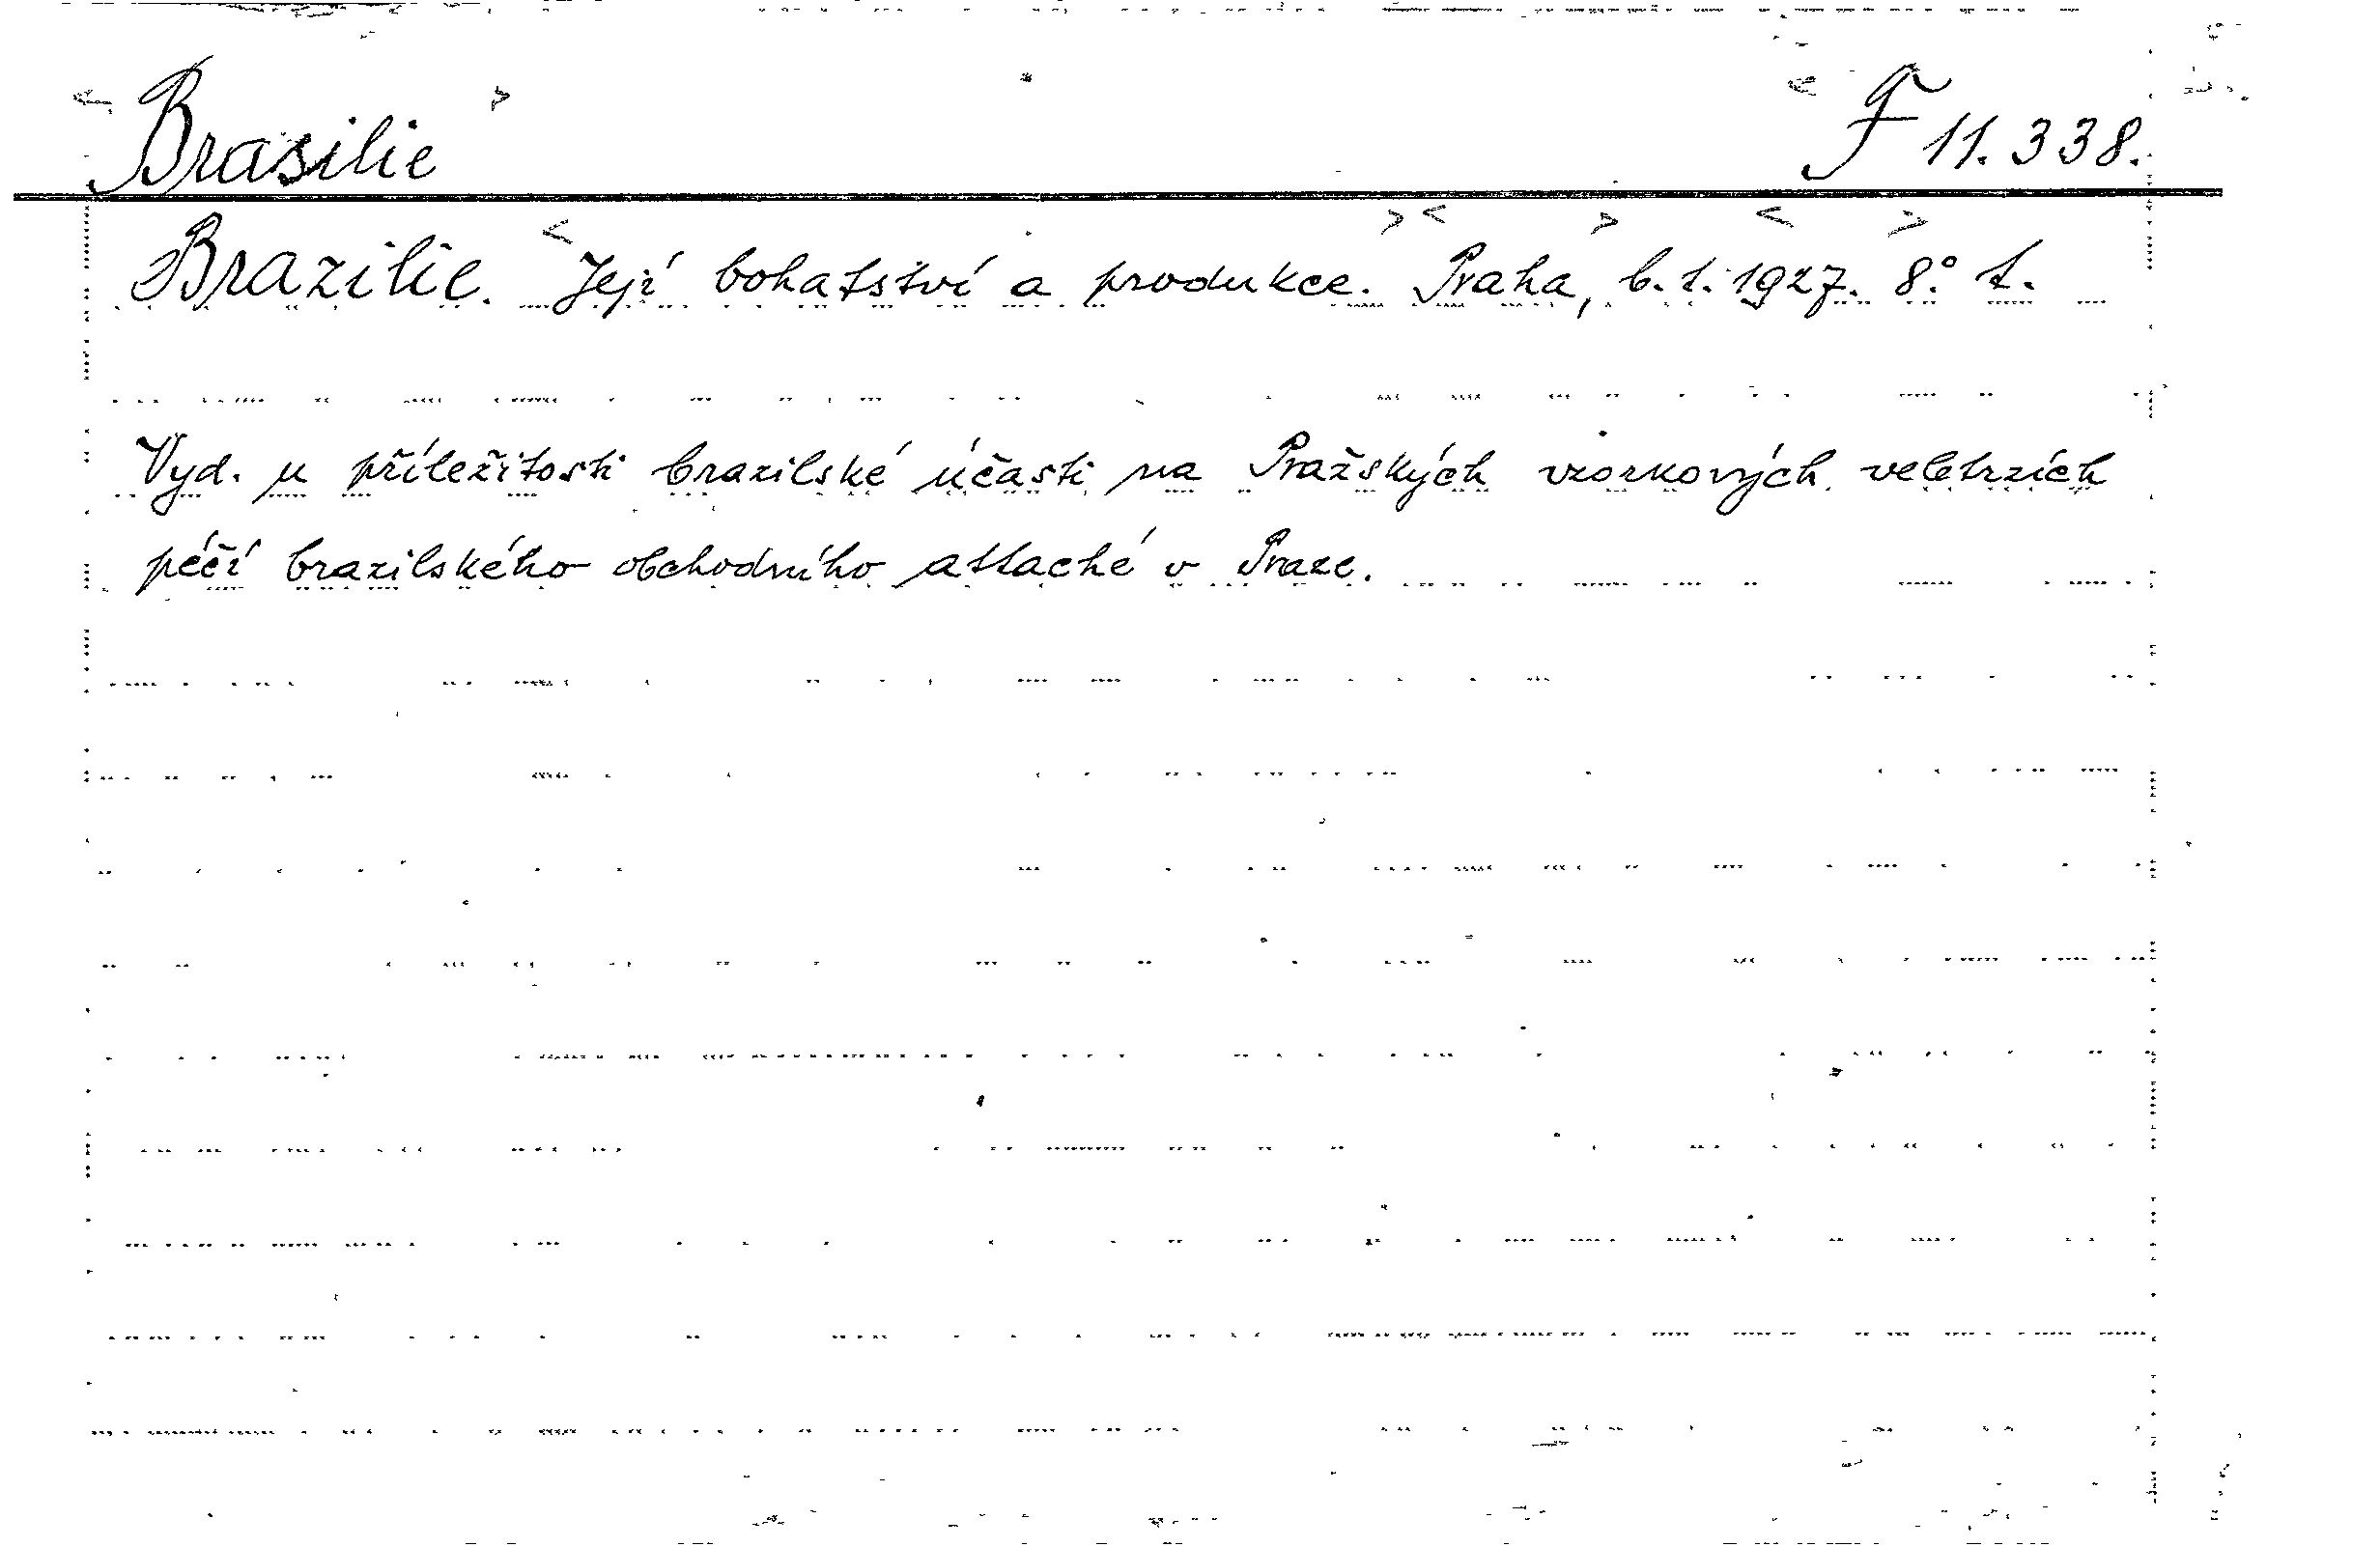 Brasilie F 11.338.
Brazilie. Její bohatství a produkce. Praha, b.t. 1927. 8° t.
Vyd. u příležitosti brazilské účasti na Pražských vzorkových veletrzích
péčí brazilského obchodního attaché v Praze.